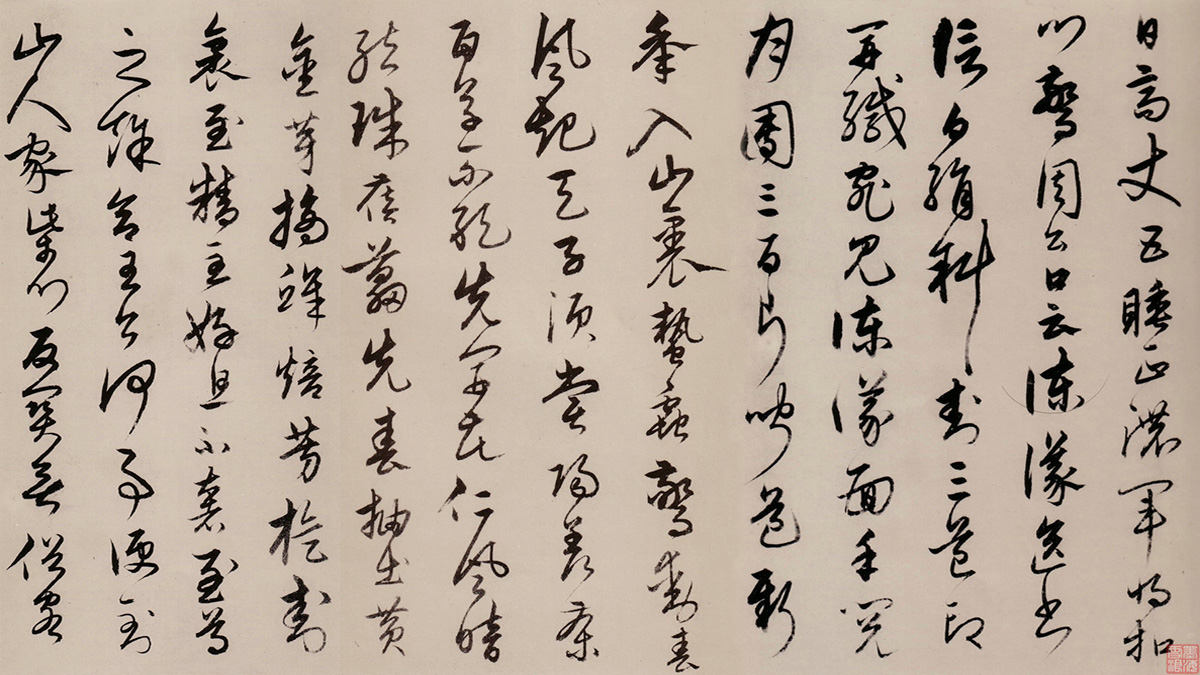 日高丈五睡正濃軍將扣
門驚周公口云諫議送書
信白絹斜封三道印
開緘宛見諫議面手閱
月團三百片聞道新
年入山裏蟄蟲驚動春
風起天子須嘗陽羨茶
百草不敢先開花仁風暗
結珠蓓蕾先春抽出黃
金芽摘鮮焙芳旋封
裹至精至好且不奢至尊
之餘合王公何事便到
山人家柴門反關無俗客